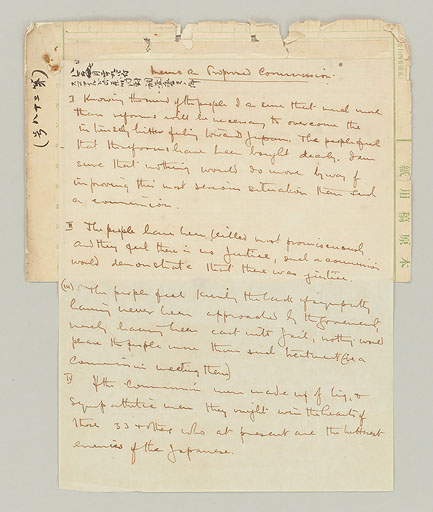 Memo on Proposed Commission.
I Knowing the mind of the people I am sure that much more
than reforms will be necessary to overcome the
intensely bitter feeling toward Japan. The people feel
that the reforms have been bought dearly. I am
sure that nothing would do more by way of
improving this most serious situation than such
a commission.
II The people have been killed most promiscuously
and they feel there is no justice, such a commission
would demonstrate that there was justice.
(III) The people feel keenly the lack of sympathy
having never been approached by the Government,
merely having been cast into jail, nothing would
please the people more than such treatment (as a
Commission meeting them)
IV If the Commission were made up of big, &
sympathetic men they might win the hearts of
those 33 & others who at present are the bitterest
enemies of the Japanese.
(第八十二号)
本原稿用紙